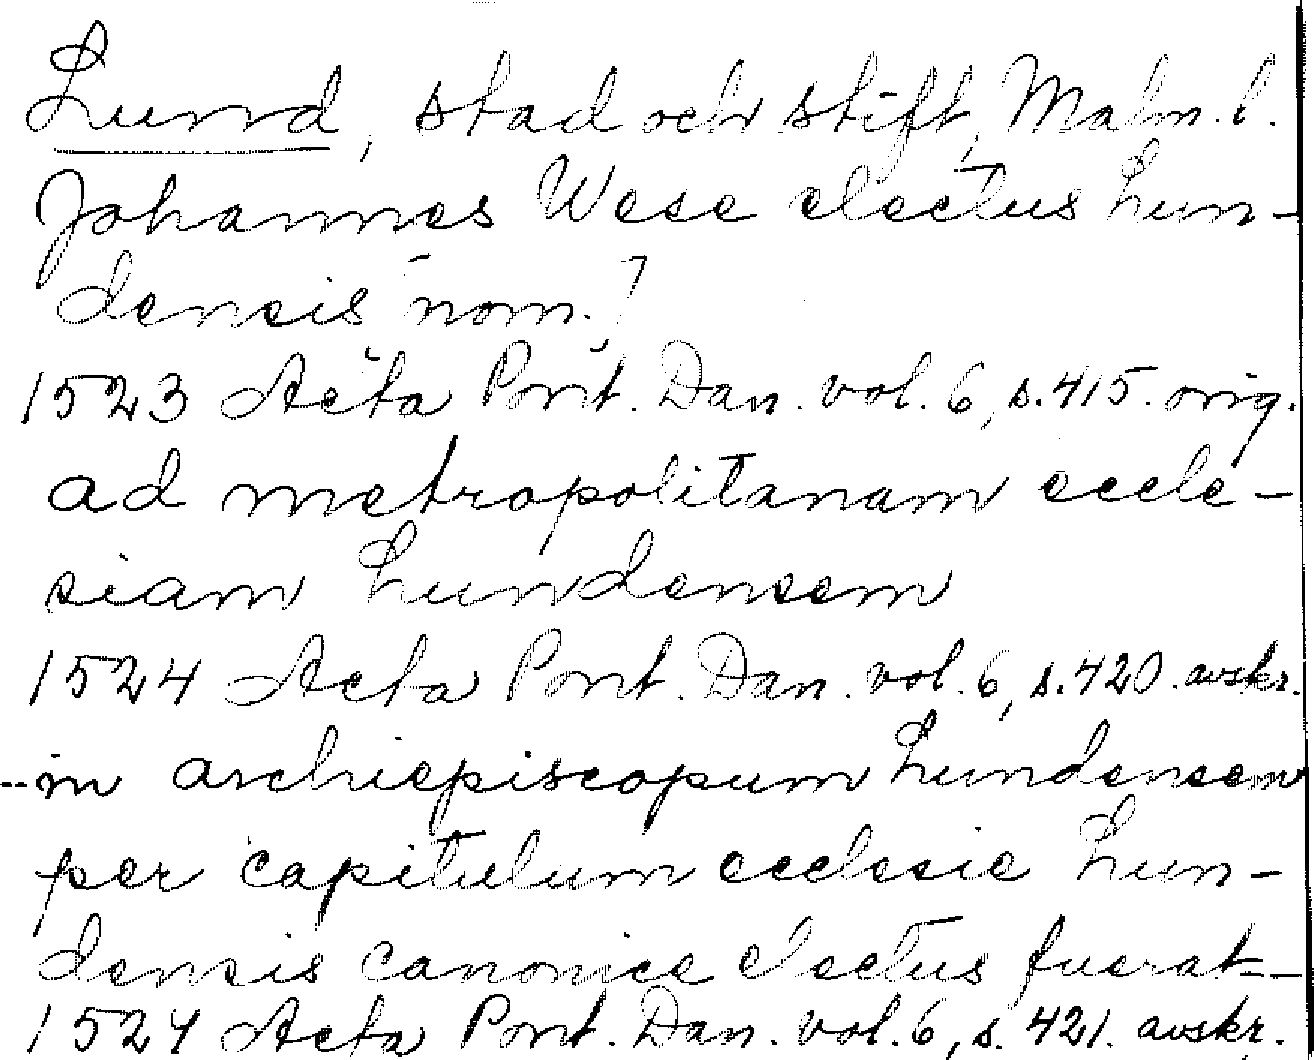 Lund, stad och stift, Malm. l.
Johannes Wese electus Lun-
densis nom.]
1523 Acta Pont. Dan. vol. 6, s. 415. orig.
ad metropolitanam eccle-
siam Lundensem
1524 Acta Pont. Dan. vol. 6, s. 420. avskr.
--in archiepiscopum Lundensem
per capitulum ecclesie Lun-
densis canonice electus fuerat--
1524 Acta Pont. Dan. vol. 6, s. 421. avskr.